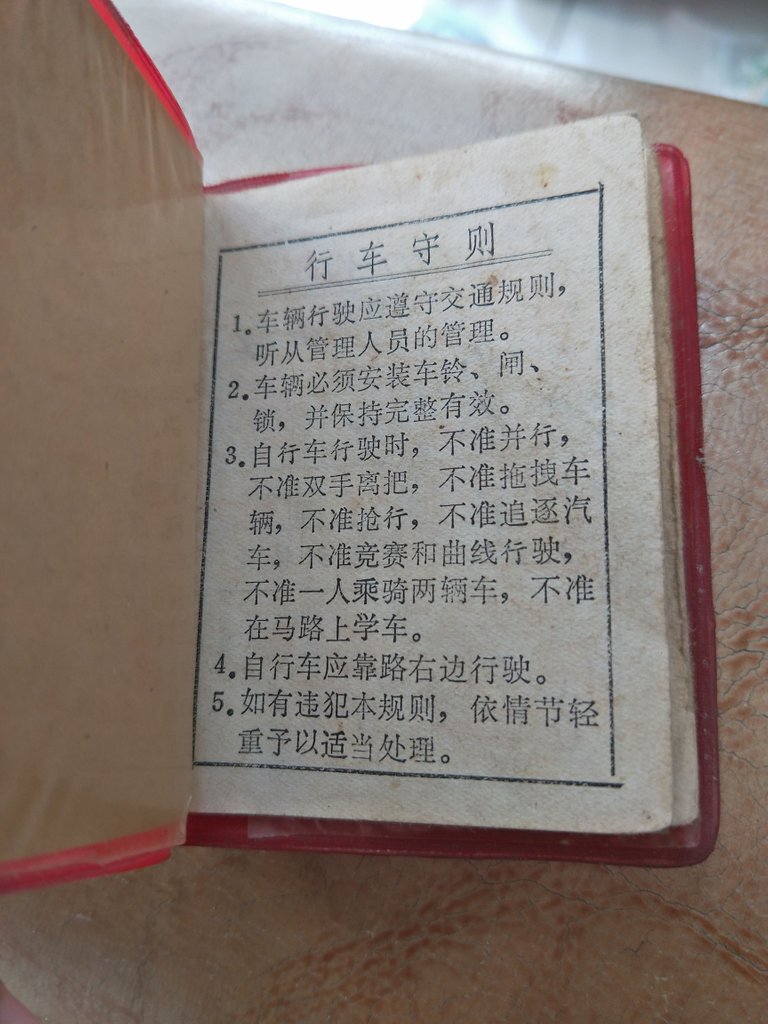 行车守则
1.车辆行驶应遵守交通规则，
听从管理人员的管理。
2.车辆必须安装车铃、闸、
锁，并保持完整有效。
3.自行车行驶时，不准并行，
不准双手离把，不准拖拽车
辆，不准抢行，不准追逐汽
车，不准竞赛和曲线行驶，
不准一人乘骑两辆车，不准
在马路上学车。
4.自行车应靠路右边行驶。
5.如有违犯本规则，依情节轻
重予以适当处理。